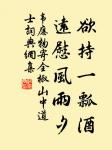 欲持一瓢酒
遠慰風雨夕
韋應物寄全椒山中道
士詞典網集